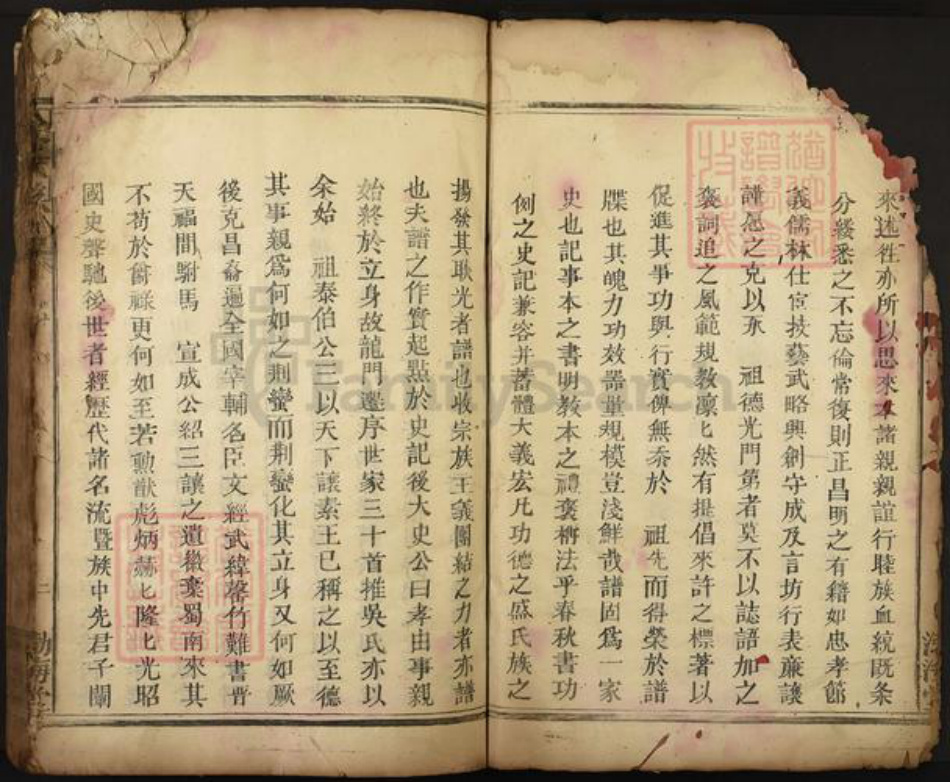 來述往亦所以思來本諸親親誼行睦族血統既条
分縷悉之不忘倫常復則正昌明之有籍如忠孝節
義儒林仕宦技藝武略興創守成及言坊行表廉讓
謹愿之克以永 祖德光門第者莫不以誌語加之
褒詞追之風範規教凜匕然有提倡來許之標著以
促進其爭功與行實俾無忝於 祖先而得榮於譜
牒也其魄力功效器量規模豈淺鮮哉譜固為一家
史也記事本之書明教本之禮褒榭法乎春秋書功
例之史記兼容并蓄體大義宏凡功德之盛氏族之
揚發其耿光者譜也收宗族王義團結之力者亦譜
也夫譜之作實起點於史記後大史公曰孝由事親
始終於立身故龍門遷序世家三十首推吳氏亦以
余始 祖泰伯公三以天下讓素王已稱之以至德
其事親為何如之荆蠻而荆蠻化其立身又何如厥
後克昌裔遍全國宰輔名臣文經武緯馨竹難書晋
天福間駙馬 宣成公紹三讓之遺徽棄蜀南來其
不茍於爵祿更何如至若勳猷彪炳赫匕隆匕光昭
國史聲馳後世者經歷代諸名流暨族中先君子闡
二
渤海堂
FamilySearch